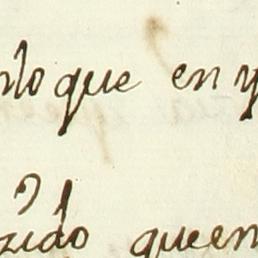 nlo que en y
zido queen